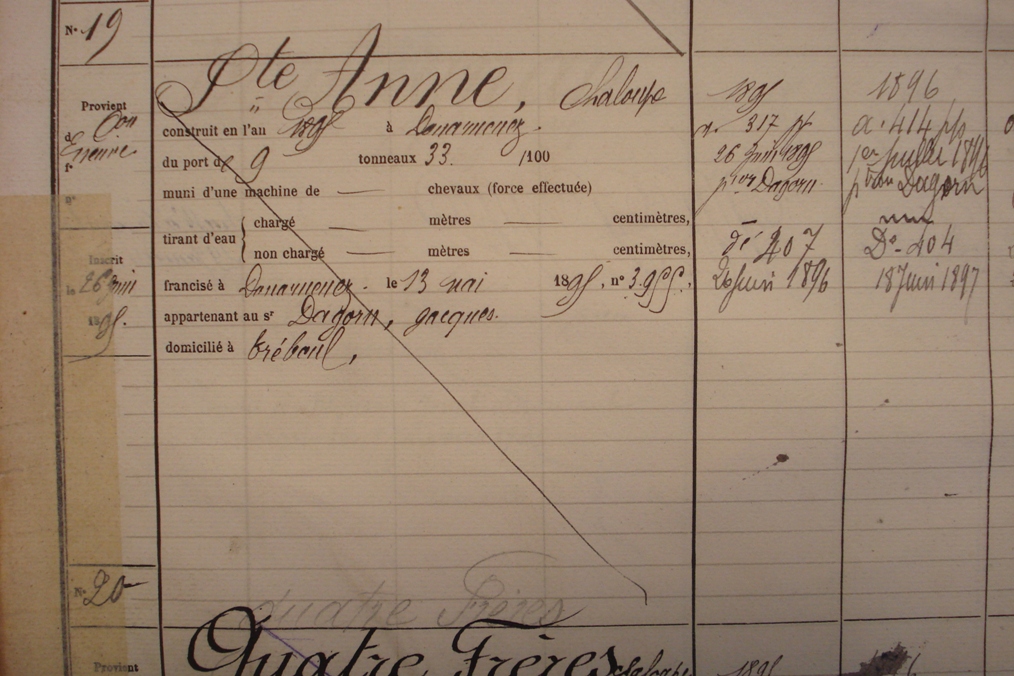 N° 19
Ste Anne, Chaloupe
Provient
construit en l'an 1895 à Douarnenez.
du port de 9 tonneaux 33. /100
muni d'une machine de — chevaux (force effectuée)
tirant d'eau { chargé — mètres — centimètres,
non chargé — mètres — centimètres,
Inscrit
le 26 Juin
1895.
francisé à Douarnenez. le 13 mai 1895, n° 3955,
appartenant au sr Dagorn, Jacques.
domicilié à Tréboul,
1895
317
26 Juin 1895
pron Dagorn.
dé 207
20 Juin 1896
1896
a. 414
1er Juillet 1896
pron Dagorn
Dé 404
18 Juin 1897
N° 20
Quatre Frères
Quatre Frères chaloupe
Provient
1895